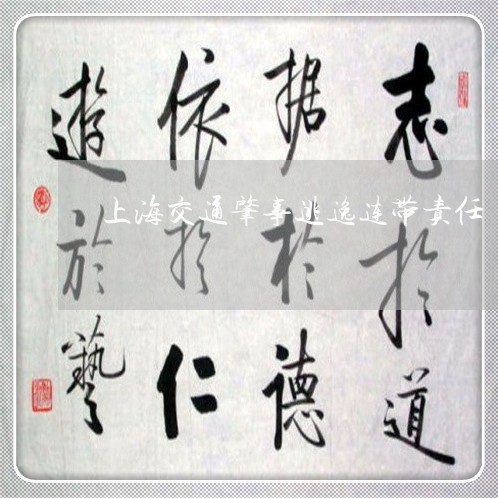 志扵道
据扵德
依扵仁
遊於藝
上海交通肇事逃逸连带责任